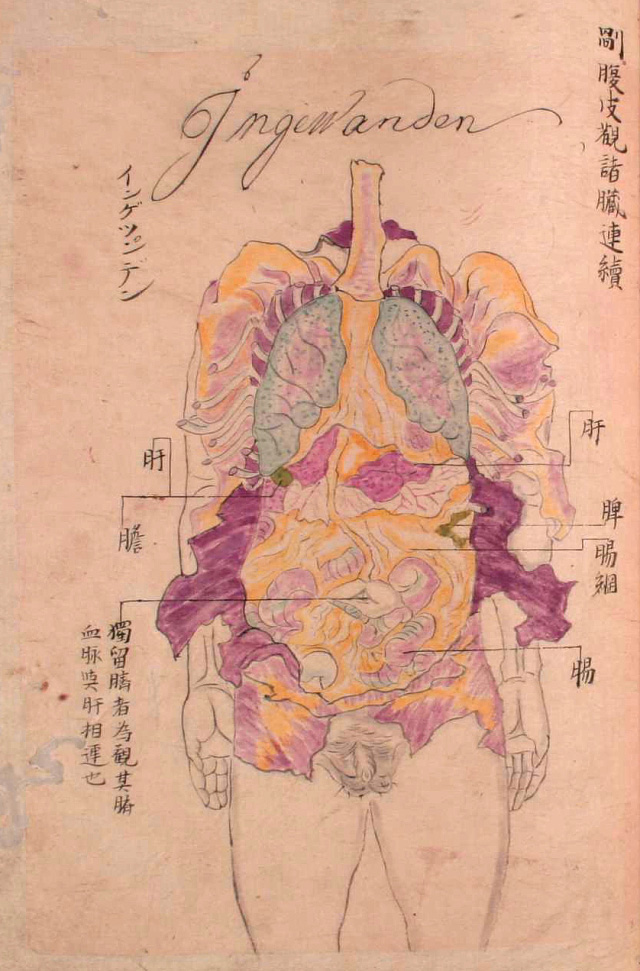 剮腹皮觀諸臟連續
Ingewanden
インゲツ゚ンデン
肝
脾
腸網
腸
肝
膽
獨留臍者為觀其臍
血脉與肝相連也